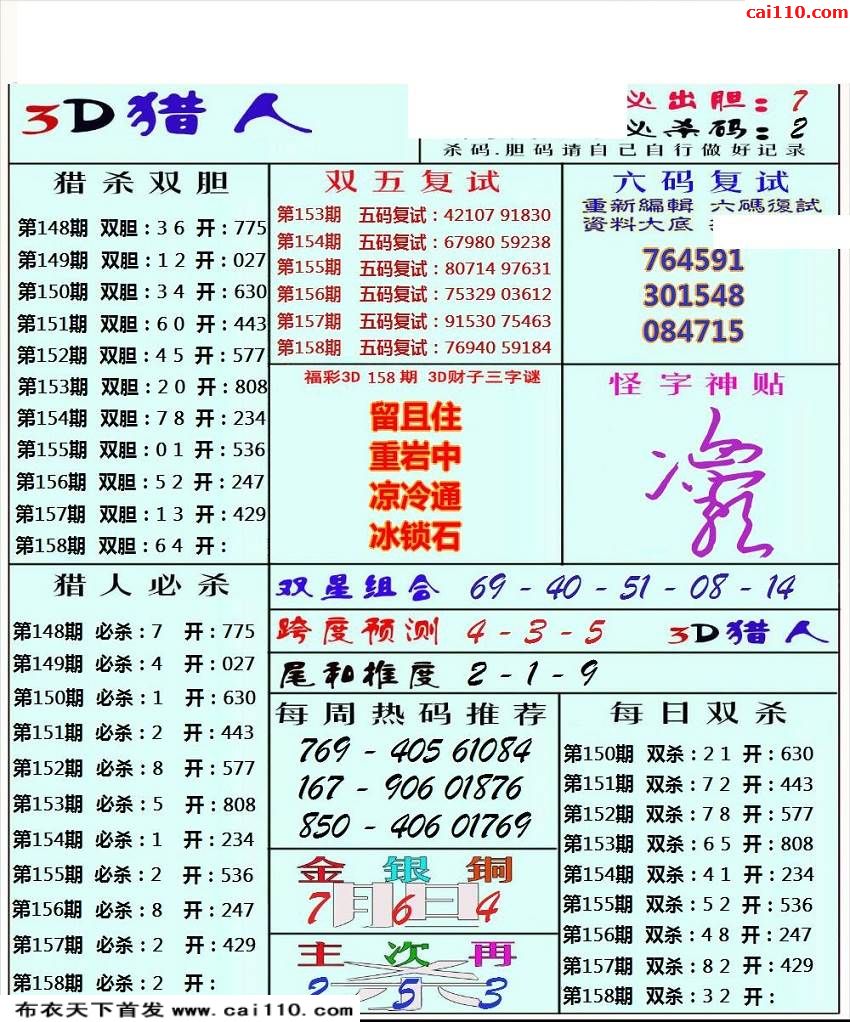 cai110.com
3D猎人
必出胆：7
必杀码：2
杀码.胆码请自己自行做好记录
猎杀双胆
第148期 双胆：3 6 开：775
第149期 双胆：1 2 开：027
第150期 双胆：3 4 开：630
第151期 双胆：6 0 开：443
第152期 双胆：4 5 开：577
第153期 双胆：2 0 开：808
第154期 双胆：7 8 开：234
第155期 双胆：0 1 开：536
第156期 双胆：5 2 开：247
第157期 双胆：1 3 开：429
第158期 双胆：6 4 开：
双五复试
第153期 五码复试：42107 91830
第154期 五码复试：67980 59238
第155期 五码复试：80714 97631
第156期 五码复试：75329 03612
第157期 五码复试：91530 75463
第158期 五码复试：76940 59184
六码复试
重新編輯 六碼復試
資料大底
764591
301548
084715
福彩3D 158期 3D财子三字谜
留且住
重岩中
凉冷通
冰锁石
怪字神贴
猎人必杀
第148期 必杀：7 开：775
第149期 必杀：4 开：027
第150期 必杀：1 开：630
第151期 必杀：2 开：443
第152期 必杀：8 开：577
第153期 必杀：5 开：808
第154期 必杀：1 开：234
第155期 必杀：2 开：536
第156期 必杀：8 开：247
第157期 必杀：2 开：429
第158期 必杀：2 开：
双星组合 69 - 40 - 51 - 08 - 14
跨度预测 4 - 3 - 5 3D猎人
尾和推度 2 - 1 - 9
每周热码推荐
769 - 405 61084
167 - 906 01876
850 - 406 01769
金银铜
7 6 4
主次再
2 5 3
每日双杀
第150期 双杀：2 1 开：630
第151期 双杀：7 2 开：443
第152期 双杀：7 8 开：577
第153期 双杀：6 5 开：808
第154期 双杀：4 1 开：234
第155期 双杀：5 2 开：536
第156期 双杀：4 8 开：247
第157期 双杀：8 2 开：429
第158期 双杀：3 2 开：
布衣天下首发 www.cai110.com